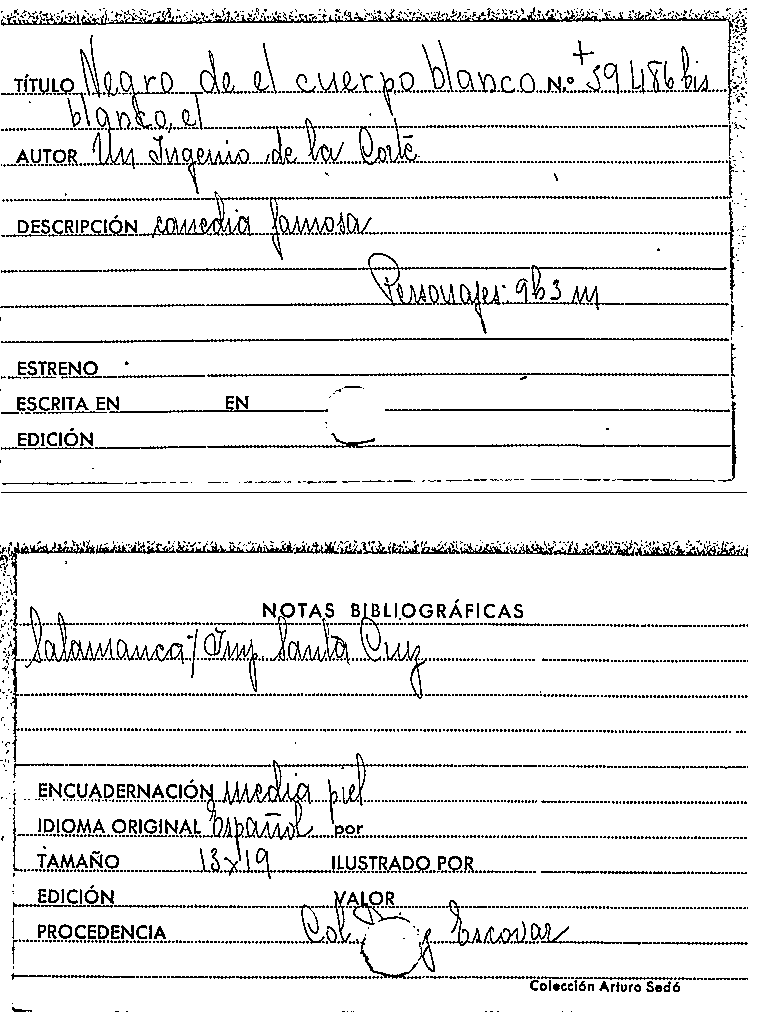 TÍTULO Negro de el cuerpo blanco N.º +59486 bis
blanco, el
AUTOR Un Ingenio de la Corte
DESCRIPCIÓN comedia famosa
Personajes: 9 h 3 m
ESTRENO
ESCRITA EN EN
EDICIÓN
NOTAS BIBLIOGRÁFICAS
Salamanca / Imp Santa Cruz
ENCUADERNACIÓN media piel
IDIOMA ORIGINAL Español por
TAMAÑO 13x19 ILUSTRADO POR
EDICIÓN VALOR
PROCEDENCIA Col. Escovar
Colección Arturo Sedó